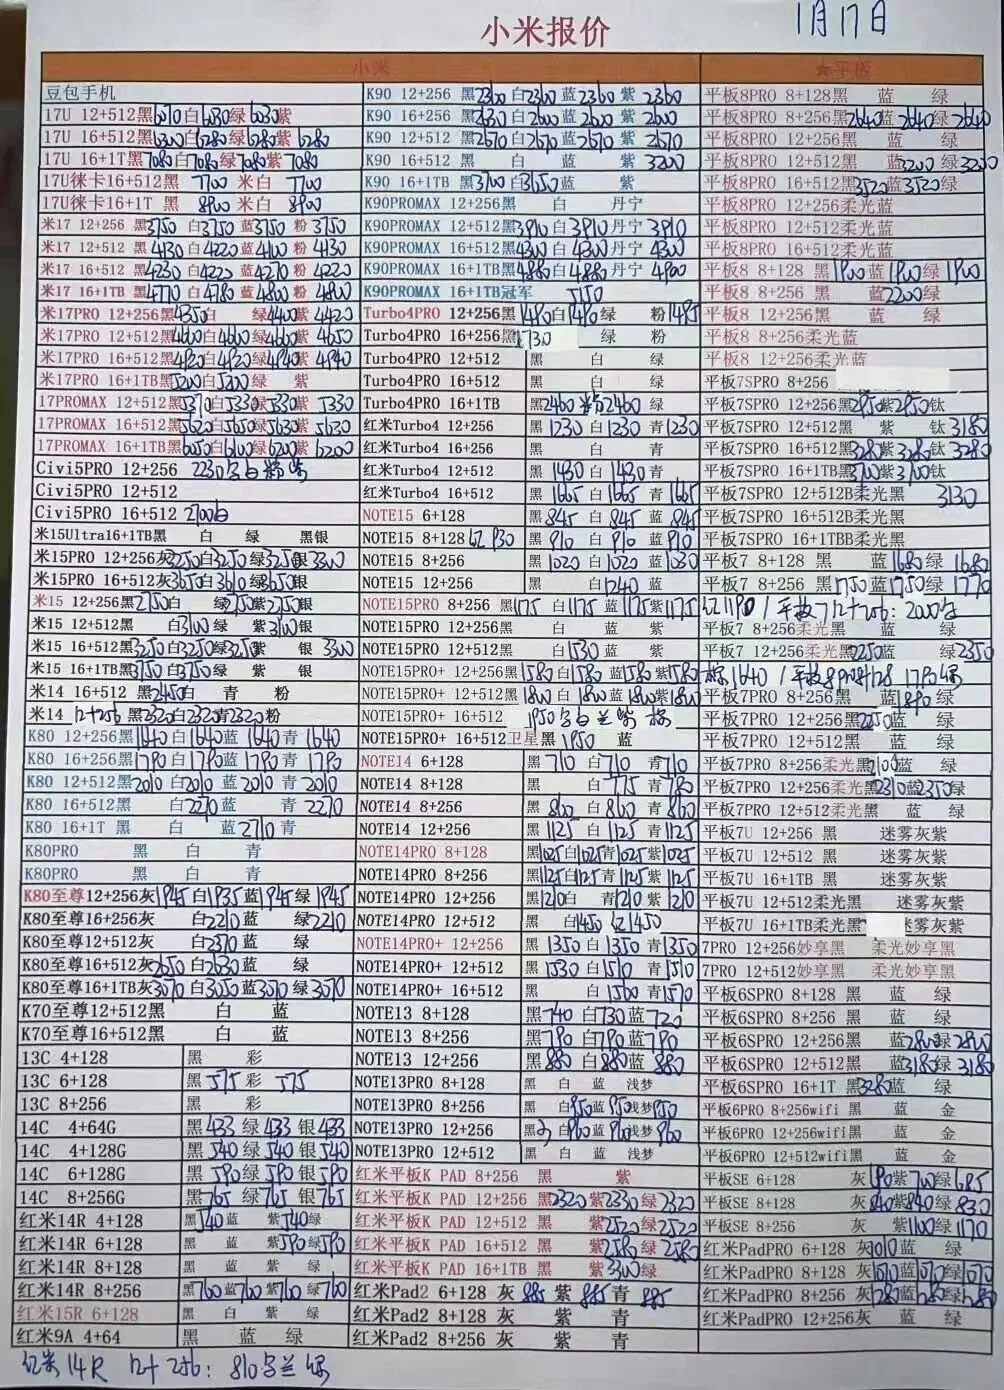 小米报价
1月17日
小米
豆包手机
17U 12+512黑6070白6030绿6030紫
17U 16+512黑6300白6280绿6280紫6280
17U 16+1T黑7080白7080绿7080紫7080
17U徕卡16+512黑 7700 米白 7700
17U徕卡16+1T 黑 8900 米白 8900
米17 12+256 黑3750 白3750蓝3750 粉 3750
米17 12+512 黑4130 白4220蓝4100 粉 4130
米17 16+512 黑4230 白4220蓝4270 粉 4220
米17 16+1TB 黑4770 白4780 蓝4800 粉 4800
米17PRO 12+256黑4350白 绿4400紫4420
米17PRO 12+512黑4600白4600绿4600紫4650
米17PRO 16+512黑4920白4920绿4940紫4940
米17PRO 16+1TB黑5200白5200绿 紫
17PROMAX 12+512黑5370白5330绿5330紫5330
17PROMAX 16+512黑5620白5650绿5630紫5630
17PROMAX 16+1TB黑6050白6100绿6200紫6200
Civi5PRO 12+256 2230
Civi5PRO 12+512
Civi5PRO 16+512 2700白
米15Ultra16+1TB黑 白 绿 黑银
米15PRO 12+256灰3250白3250绿3250银3300
米15PRO 16+512灰3650白3610绿3650银
米15 12+256黑2750白 绿2750紫2750银
米15 12+512黑 白3100绿 紫3100银
米15 16+512黑3250白3250绿3250紫 银 3300
米15 16+1TB黑3750白3750绿 紫 银
米14 16+512 黑2450白 青 粉
米14 12+256 黑2320白2320青2320粉
K80 12+256黑1640白1640蓝1640青1640
K80 16+256黑1790白1790蓝1790青1790
K80 12+512黑2010白2010蓝2010青2010
K80 16+512黑 白2270蓝 青2270
K80 16+1T 黑 白 蓝2710青
K80PRO 黑 白 青
K80PRO 黑 白 青
K80至尊12+256灰1945白1935蓝1945绿1945
K80至尊16+256灰 白2210蓝 绿2210
K80至尊12+512灰 白2370蓝 绿
K80至尊16+512灰2650白2630蓝 绿
K80至尊16+1TB灰3070白3050蓝3070绿3070
K70至尊12+512黑 白 蓝
K70至尊16+512黑 白 蓝
13C 4+128 黑 彩
13C 6+128 黑575彩575
13C 8+256 黑 彩
14C 4+64G 黑433绿433银433
14C 4+128G 黑540绿540银540
14C 6+128G 黑590绿590银590
14C 8+256G 黑765绿765银765
红米14R 4+128 黑540蓝 紫540绿
红米14R 6+128 黑 蓝 紫590绿590
红米14R 8+128 黑 蓝 紫 绿
红米14R 8+256 黑760蓝760紫760绿760
红米15R 6+128 黑 白 紫 绿
红米9A 4+64 黑 蓝 绿
红米14R 12+256: 810
K90 12+256 黑2360白2360蓝2360紫 2360
K90 16+256 黑2630白2600蓝2600紫 2600
K90 12+512 黑2670白2670蓝2670紫 2670
K90 16+512 黑 白 蓝 紫 3200
K90 16+1TB 黑3700白3150蓝 紫
K90PROMAX 12+256黑 白 丹宁
K90PROMAX 12+512黑3910白3910丹宁 3910
K90PROMAX 16+512黑4300白4300丹宁 4300
K90PROMAX 16+1TB黑4880白4880丹宁 4900
K90PROMAX 16+1TB冠军 5150
Turbo4PRO 12+256黑1490白1490绿 粉1495
Turbo4PRO 16+256黑1730 绿 粉
Turbo4PRO 12+512 黑 白 绿
Turbo4PRO 16+512 黑 白 绿
Turbo4PRO 16+1TB 黑2460 2460绿
红米Turbo4 12+256 黑1230白1230青1230
红米Turbo4 16+256 黑 白 青
红米Turbo4 12+512 黑1430白1430青
红米Turbo4 16+512 黑1665白1665青1665
NOTE15 6+128 黑845白845蓝845
NOTE15 8+128红930 黑910白910蓝910
NOTE15 8+256 黑1020白1020蓝1030
NOTE15 12+256 黑 白1240蓝
NOTE15PRO 8+256 黑1175白1175蓝1175紫1175 红1190
NOTE15PRO 12+256黑 白 蓝 紫
NOTE15PRO 12+512黑 白1530蓝 紫
NOTE15PRO+ 12+256黑1580白1580蓝1580紫1580 1640
NOTE15PRO+ 12+512黑1800白1800蓝1800紫1800
NOTE15PRO+ 16+512 1950
NOTE15PRO+ 16+512卫星黑1950 蓝
NOTE14 6+128 黑710白710青710
NOTE14 8+128 黑 白775青780
NOTE14 8+256 黑860白860青860
NOTE14 12+256 黑1125白1125青1125
NOTE14PRO 8+128 黑1025白1025青1025紫1025
NOTE14PRO 8+256 黑1125白1125青1125紫1125
NOTE14PRO 12+256 黑1210白 青1210紫1210
NOTE14PRO 12+512 黑 白1450红1450
NOTE14PRO+ 12+256 黑1350白1350青1350
NOTE14PRO+ 12+512 黑1530白1510青1510
NOTE14PRO+ 16+512 黑 白1560青1570
NOTE13 8+128 黑740白730蓝720
NOTE13 8+256 黑790白790蓝790
NOTE13 12+256 黑880白880蓝880
NOTE13PRO 8+128 黑 白 蓝 浅梦
NOTE13PRO 8+256 黑 白950蓝950浅梦950
NOTE13PRO 12+256 黑 白960蓝960浅梦960
NOTE13PRO 12+512 黑 白 蓝 浅梦
红米平板K PAD 8+256 黑 紫
红米平板K PAD 12+256 黑2320紫2330绿2320
红米平板K PAD 12+512 黑 紫2520绿2520
红米平板K PAD 16+512 黑 紫2580绿2580
红米平板K PAD 16+1TB 黑 紫3300绿
红米Pad2 6+128 灰 885紫885青885
红米Pad2 8+128 灰 紫 青
红米Pad2 8+256 灰 紫 青
★平板
平板8PRO 8+128黑 蓝 绿
平板8PRO 8+256黑2640蓝2640绿2640
平板8PRO 12+256黑 蓝 绿
平板8PRO 12+512黑 蓝3200绿3200
平板8PRO 16+512黑3520蓝3520绿
平板8PRO 12+256柔光蓝
平板8PRO 12+512柔光蓝
平板8PRO 16+512柔光蓝
平板8 8+128 黑1900蓝1900绿1900
平板8 8+256 黑 蓝2200绿
平板8 12+256黑 蓝 绿
平板8 8+256柔光蓝
平板8 12+256柔光蓝
平板7SPRO 8+256
平板7SPRO 12+256黑2950紫2950钛
平板7SPRO 12+512黑 紫 钛3180
平板7SPRO 16+512黑3280紫3280钛3280
平板7SPRO 16+1TB黑3700紫3700钛
平板7SPRO 12+512B柔光黑 3130
平板7SPRO 16+512B柔光黑
平板7SPRO 16+1TBB柔光黑
平板7 8+128 黑 蓝1680绿1680
平板7 8+256 黑1750蓝1750绿1770
平板7 12+256: 2000
平板7 8+256柔光黑 蓝 绿
平板7 12+256柔光黑2250蓝 绿2350
平板8PRO8+128 1790绿
平板7PRO 8+256黑 蓝1890绿
平板7PRO 12+256黑2250蓝 绿
平板7PRO 12+512黑 蓝 绿
平板7PRO 8+256柔光黑2100蓝 绿
平板7PRO 12+256柔光黑2310蓝2350绿
平板7PRO 12+512柔光黑 蓝 绿
平板7U 12+256 黑 迷雾灰紫
平板7U 12+512 黑 迷雾灰紫
平板7U 16+1TB 黑 迷雾灰紫
平板7U 12+512柔光黑 迷雾灰紫
平板7U 16+1TB柔光黑 迷雾灰紫
7PRO 12+256妙享黑 柔光妙享黑
7PRO 12+512妙享黑 柔光妙享黑
平板6SPRO 8+128 黑 蓝 绿
平板6SPRO 8+256 黑 蓝 绿
平板6SPRO 12+256黑 蓝2800绿2800
平板6SPRO 12+512黑 蓝3180绿3180
平板6SPRO 16+1T 黑3280蓝 绿
平板6PRO 8+256wifi 黑 蓝 金
平板6PRO 12+256wifi黑 蓝 金
平板6PRO 12+512wifi黑 蓝 金
平板SE 6+128 灰690紫700绿685
平板SE 8+128 灰840紫840绿830
平板SE 8+256 灰 紫1100绿1170
红米PadPRO 6+128 灰1010蓝 绿
红米PadPRO 8+128 灰1070蓝1070绿1070
红米PadPRO 8+256 灰1280蓝1280绿1280
红米PadPRO 12+256灰 蓝 绿